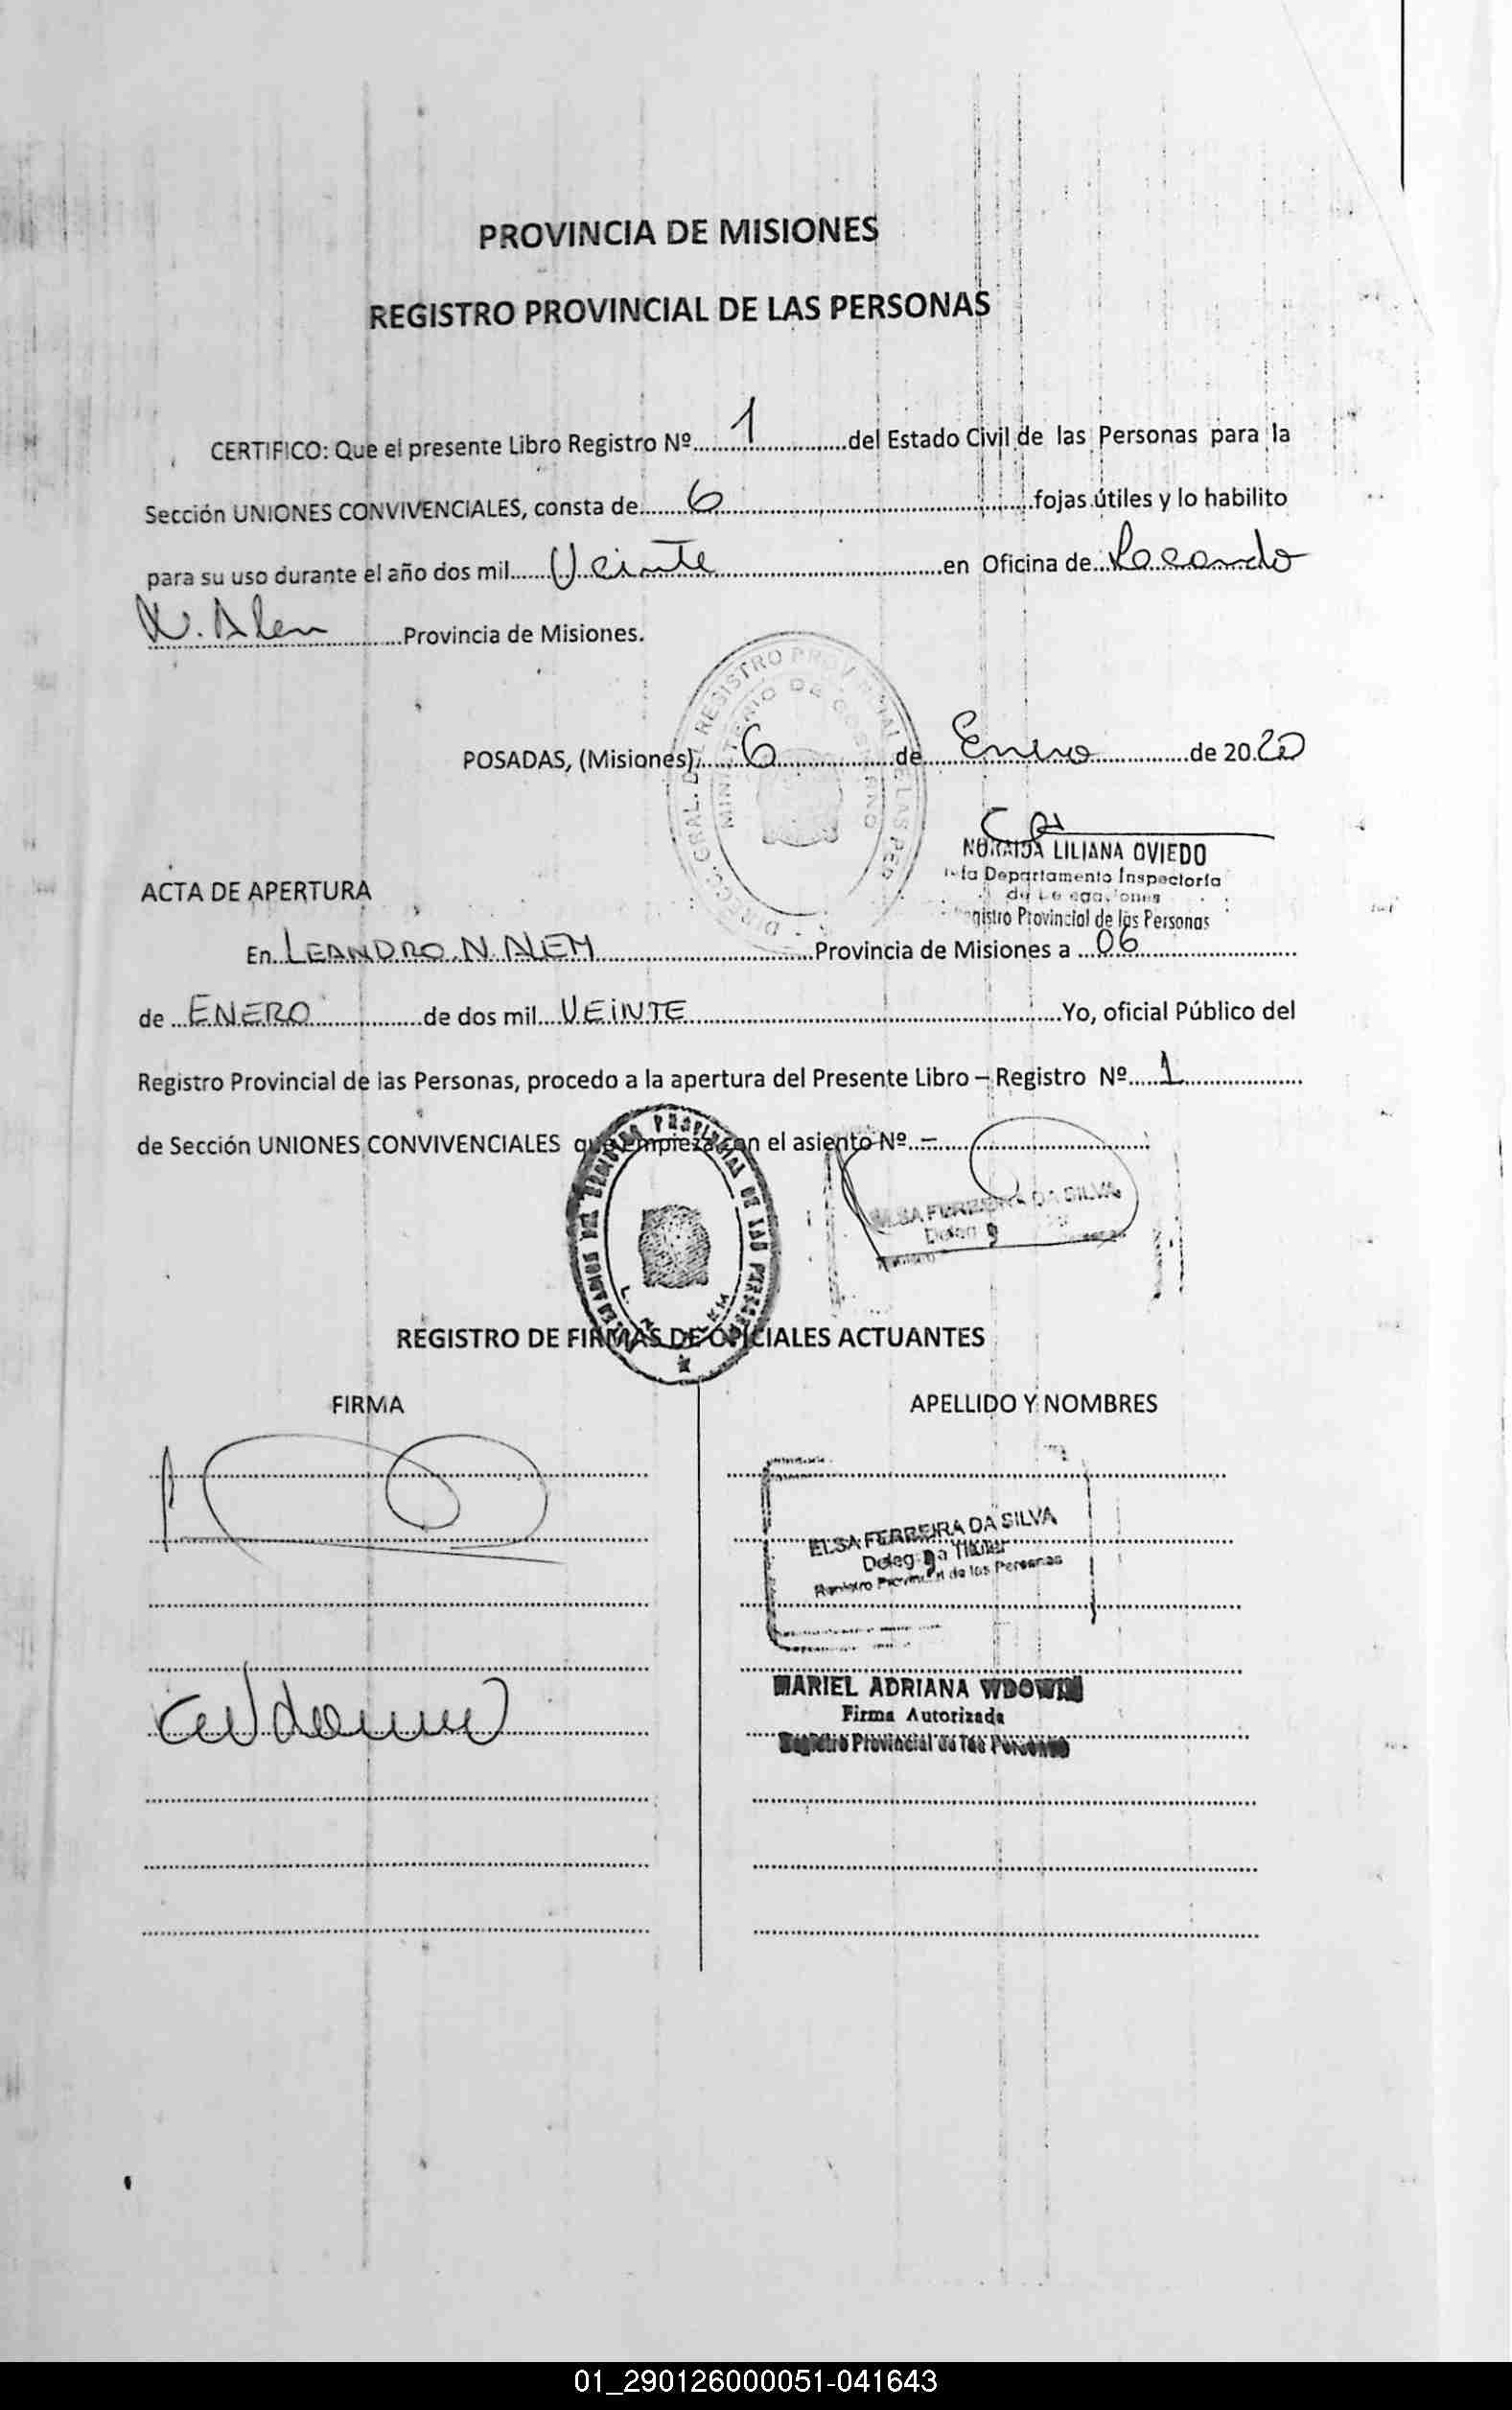 PROVINCIA DE MISIONES
REGISTRO PROVINCIAL DE LAS PERSONAS
CERTIFICO: Que el presente Libro Registro Nº 1 del Estado Civil de las Personas para la
Sección UNIONES CONVIVENCIALES, consta de 6 fojas útiles y lo habilito
para su uso durante el año dos mil Veinte en Oficina de
N. Alem Provincia de Misiones.
POSADAS, (Misiones), 6 de Enero de 2020
LILIANA OVIEDO
Departamento Inspectoría
Registro Provincial de las Personas
ACTA DE APERTURA
En LEANDRO N. ALEM Provincia de Misiones a 06
de ENERO de dos mil VEINTE Yo, oficial Público del
Registro Provincial de las Personas, procedo a la apertura del Presente Libro – Registro Nº 1
de Sección UNIONES CONVIVENCIALES que empieza con el asiento Nº –
ELSA FERREIRA DA SILVA
REGISTRO DE FIRMAS DE OFICIALES ACTUANTES
FIRMA APELLIDO Y NOMBRES
ELSA FERREIRA DA SILVA
Titular
Registro Provincial de las Personas
MARIEL ADRIANA
Firma Autorizada
Registro Provincial de las Personas
01_290126000051-041643